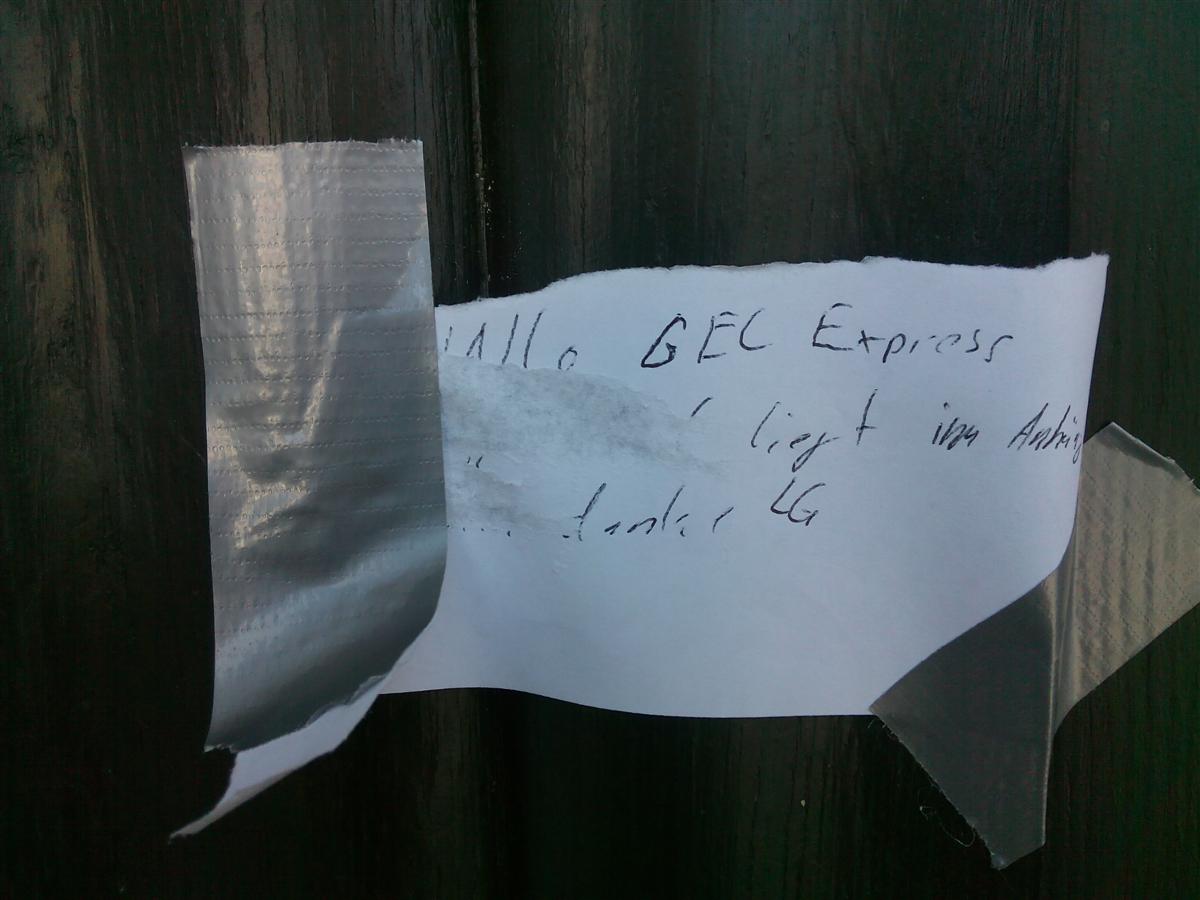 Hallo GEC Express
liegt im Anhäng
danke LG